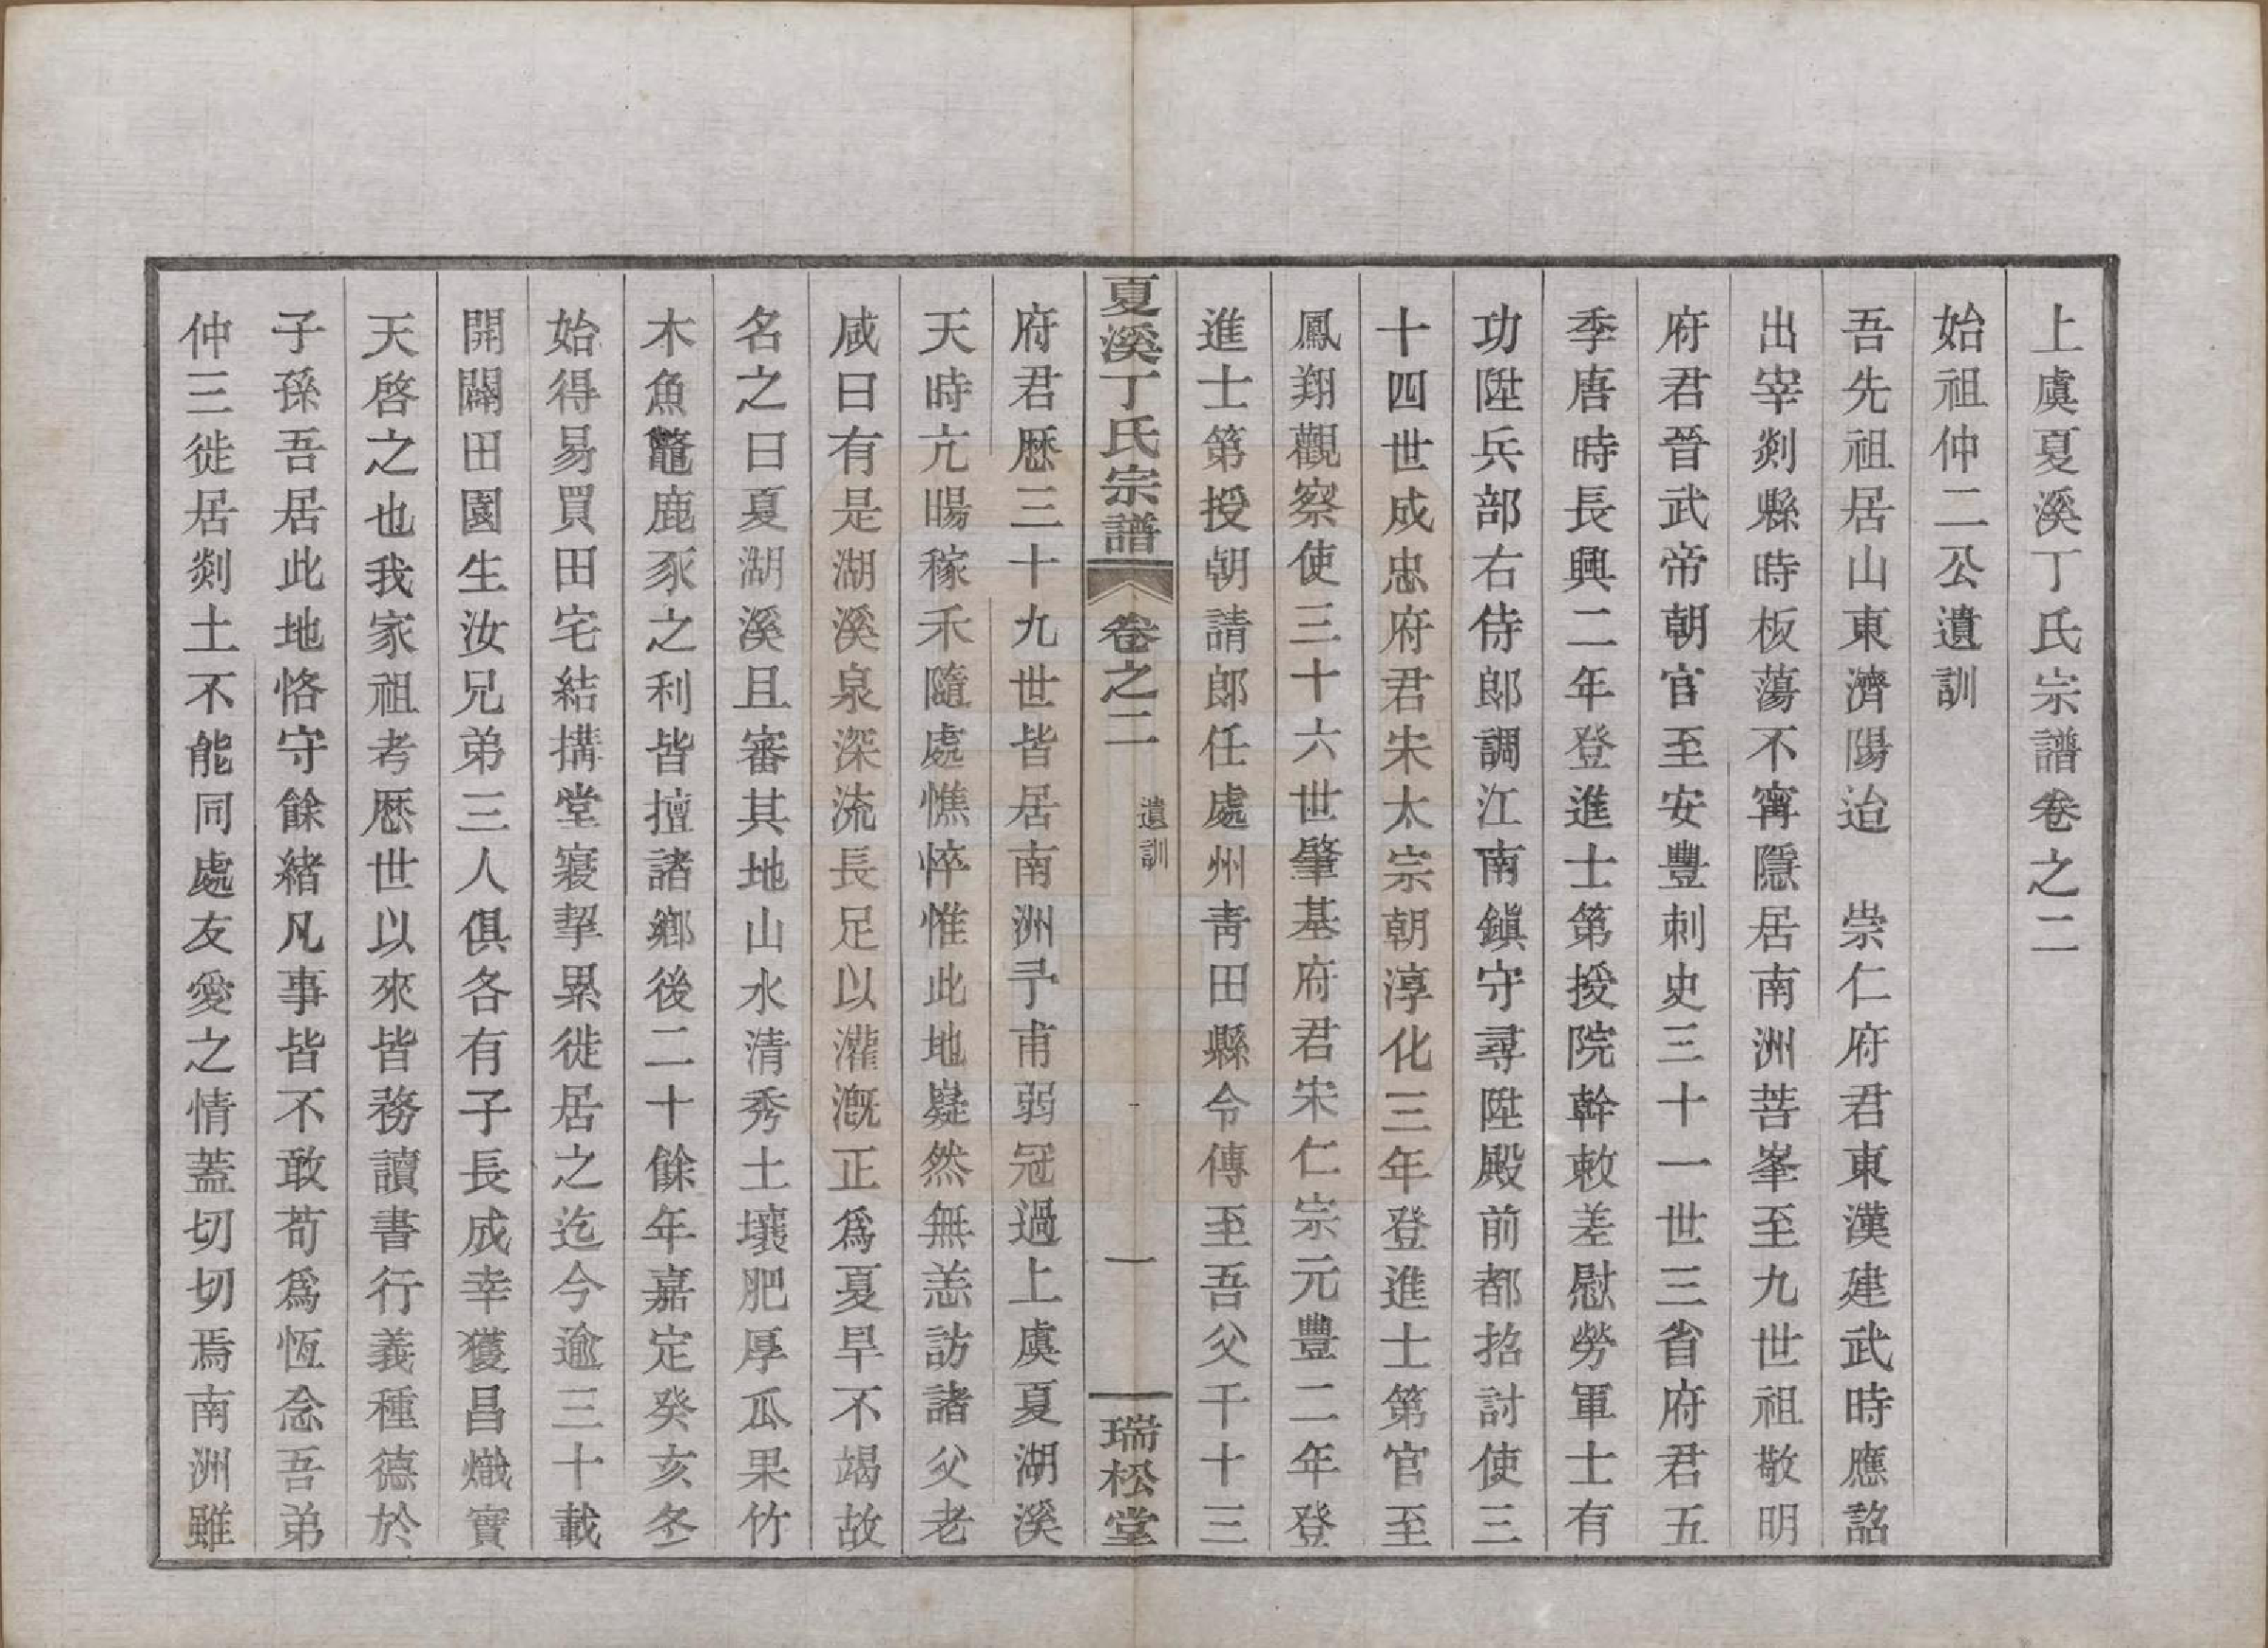 上虞夏溪丁氏宗譜卷之二
始祖仲二公遺訓
吾先祖居山東濟陽迨　崇仁府君東漢建武時應詔
出宰剡縣時板蕩不甯隱居南洲菩峯至九世祖敬明
府君晉武帝朝官至安豐刺史三十一世三省府君五
季唐時長興二年登進士第授院幹敕差慰勞軍士有
功陞兵部右侍郎調江南鎭守尋陞殿前都招討使三
十四世成忠府君宋太宗朝淳化三年登進士第官至
鳳翔觀察使三十六世肇基府君宋仁宗元豐二年登
進士第授朝請郎任處州靑田縣令傳至吾父千十三
夏溪丁氏宗譜　卷之二　遺訓　一　瑞松堂
府君歷三十九世皆居南洲予甫弱冠過上虞夏湖溪
天時亢暘稼禾隨處憔悴惟此地嶷然無恙訪諸父老
咸曰有是湖溪泉深流長足以灌漑正爲夏旱不竭故
名之曰夏湖溪且審其地山水清秀土壤肥厚瓜果竹
木魚鼈鹿豕之利皆擅諸鄉後二十餘年嘉定癸亥冬
始得易買田宅結搆堂寢挈累徙居之迄今逾三十載
開闢田園生汝兄弟三人俱各有子長成幸獲昌熾實
天啓之也我家祖考歷世以來皆務讀書行義種德於
子孫吾居此地恪守餘緒凡事皆不敢苟爲恆念吾弟
仲三徙居剡土不能同處友愛之情蓋切切焉南洲雖